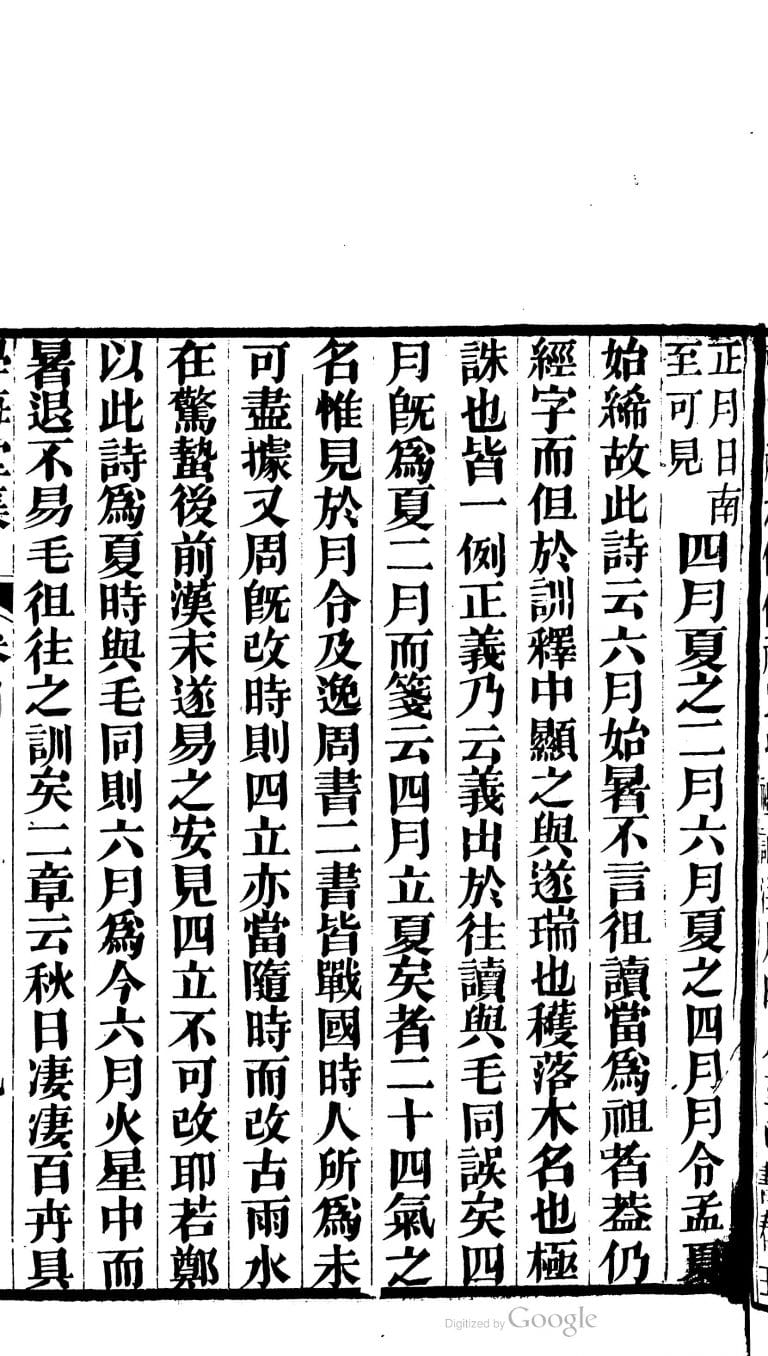 正月日南
至可見
四月夏之二月六月夏之四月月令孟夏
始絺故此詩云六月始暑不言徂讀當爲祖者葢仍
經字而但於訓釋中顯之與遂瑞也穫落木名也極
誅也皆一例正義乃云義出於往讀與毛同誤矣四
月旣爲夏二月而箋云四月立夏矣者二十四氣之
名惟見於月令及逸周書二書皆戰國時人所爲未
可盡據又周旣改時則四立亦當隨時而改古雨水
在驚蟄後前漢末遂易之安見四立不可改耶若鄭
以此詩爲夏時與毛同則六月爲今六月火星中而
暑退不易毛徂往之訓矣二章云秋日凄凄百卉具
Digitized by Google